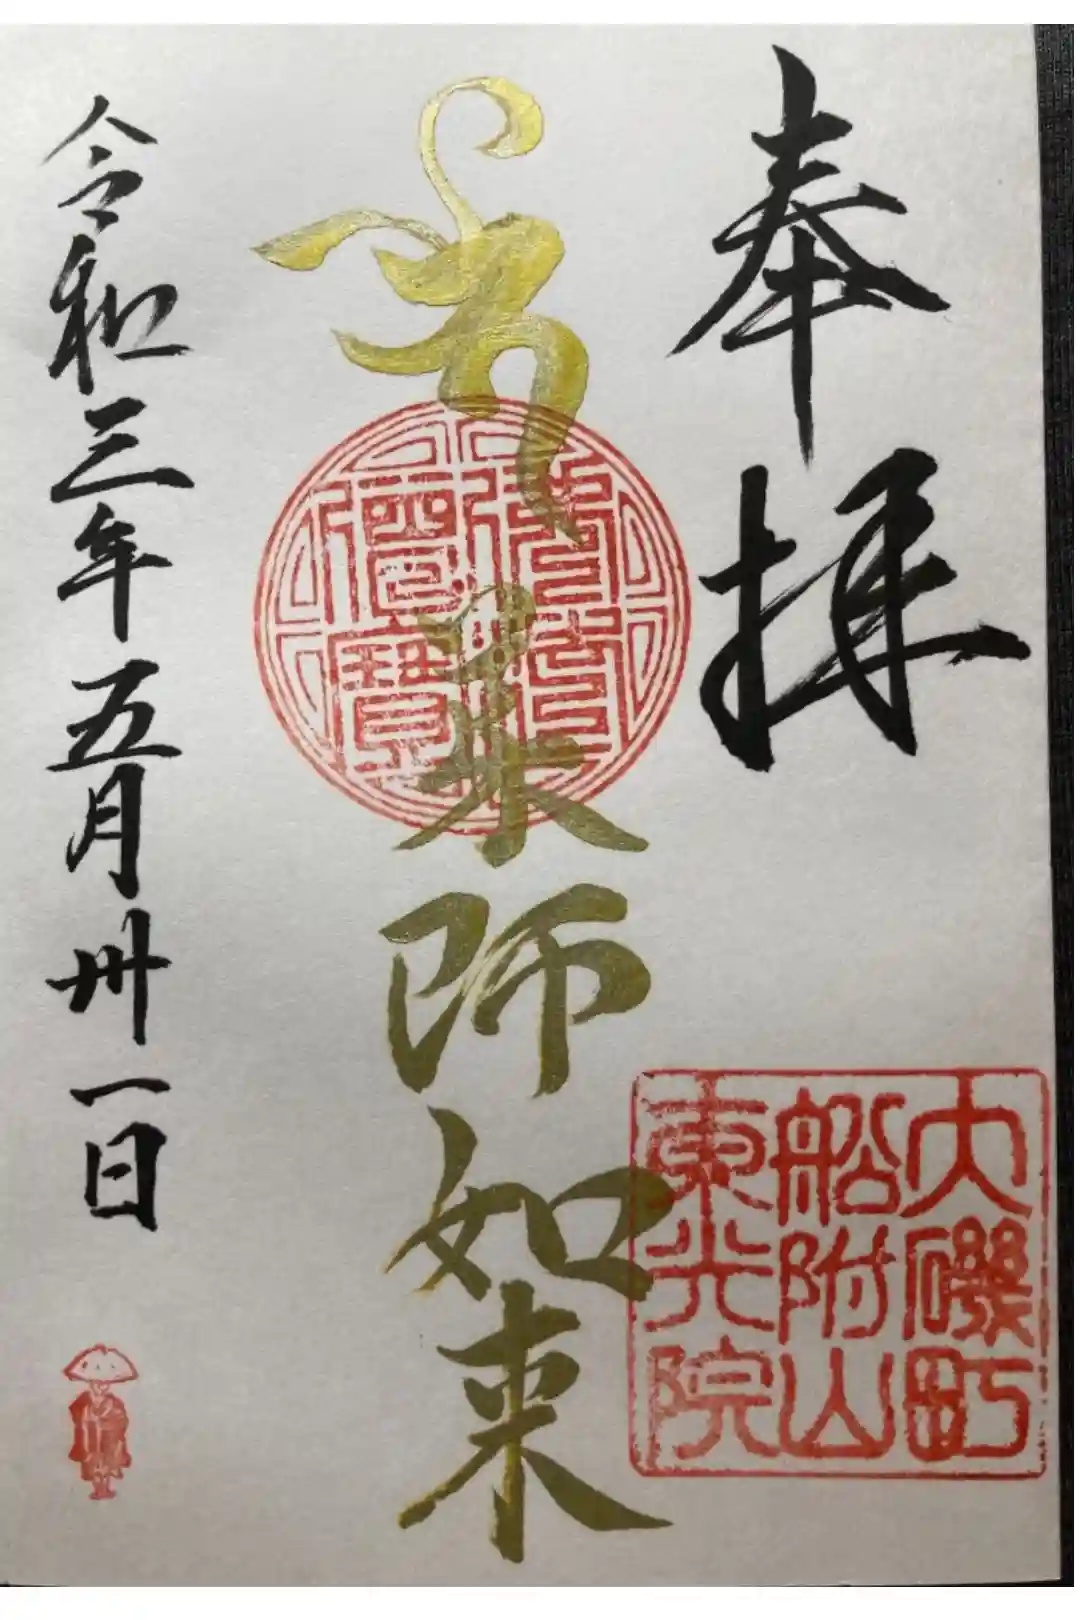 奉拝
薬師如来
佛法僧寶
大磯町
船附山
東光院
令和三年五月卅一日